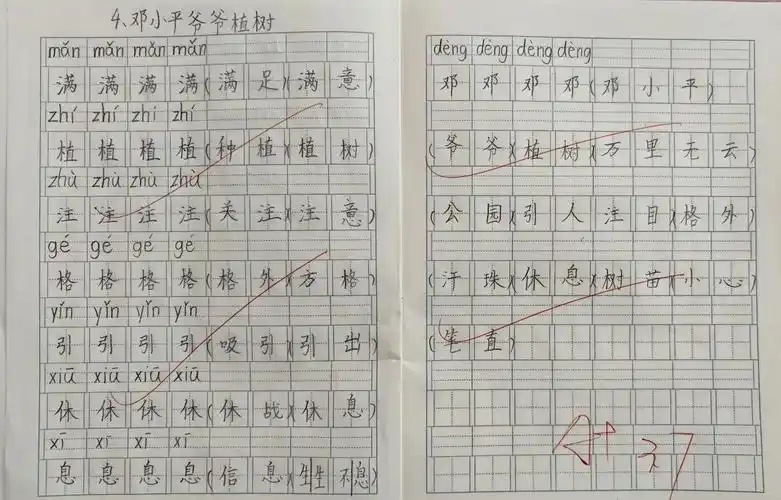 4、邓小平爷爷植树
mǎn mǎn mǎn mǎn
满 满 满 满(满 足)(满 意)
zhí zhí zhí zhí
植 植 植 植(种 植)(植 树)
zhù zhù zhù zhù
注 注 注 注(关 注)(注 意)
gé gé gé gé
格 格 格 格(格 外)(方 格)
yǐn yǐn yǐn yǐn
引 引 引 引(吸 引)(引 出)
xiū xiū xiū xiū
休 休 休 休(休 战)(休 息)
xī xī xī xī
息 息 息 息(信 息)(生生 不息)
dèng dèng dèng dèng
邓 邓 邓 邓(邓 小 平)
(爷 爷)(植 树)(万 里 无 云)
(公 园)(引 人 注 目)(格 外)
(汗 珠)(休 息)(树 苗)(小 心)
(笔 直)